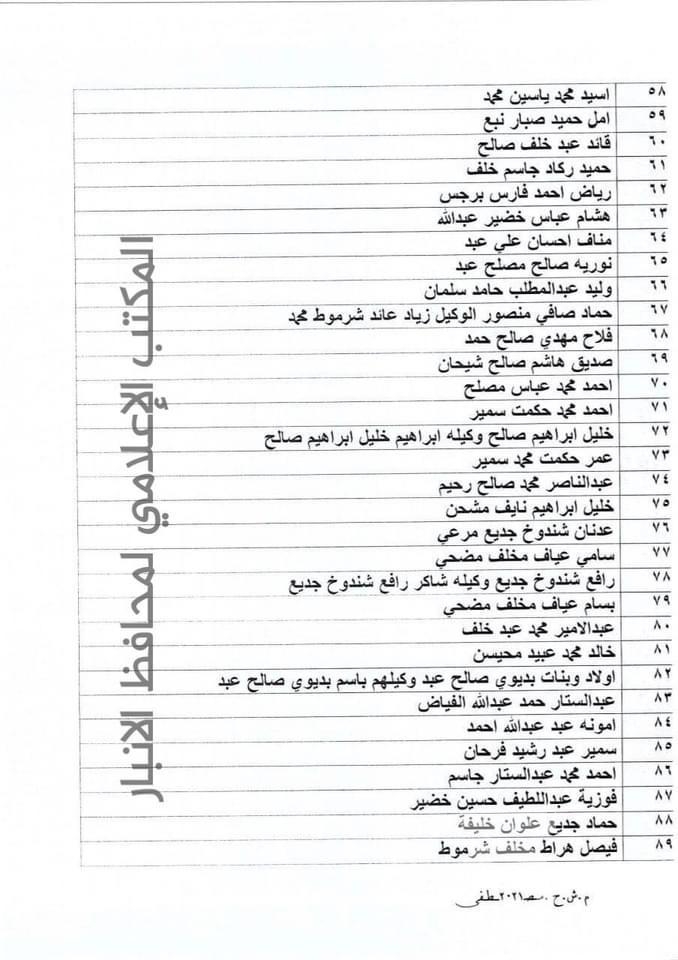 ٥٨ اسيد محمد ياسين محمد
٥٩ امل حميد صبار نبع
٦٠ قائد عبد خلف صالح
٦١ حميد ركاد جاسم خلف
٦٢ رياض احمد فارس برجس
٦٣ هشام عباس خضير عبدالله
٦٤ مناف احسان علي عبد
٦٥ نوريه صالح مصلح عبد
٦٦ وليد عبدالمطلب حامد سلمان
٦٧ حماد صافي منصور الوكيل زياد عائد شرموط محمد
٦٨ فلاح مهدي صالح حمد
٦٩ صديق هاشم صالح شيحان
٧٠ احمد محمد عباس مصلح
٧١ احمد محمد حكمت سمير
٧٢ خليل ابراهيم صالح وكيله ابراهيم خليل ابراهيم صالح
٧٣ عمر حكمت محمد سمير
٧٤ عبدالناصر محمد صالح رحيم
٧٥ خليل ابراهيم نايف مشحن
٧٦ عدنان شندوخ جديع مرعي
٧٧ سامي عياف مخلف مضحي
٧٨ رافع شندوخ جديع وكيله شاكر رافع شندوخ جديع
٧٩ بسام عياف مخلف مضحي
٨٠ عبدالامير محمد عبد خلف
٨١ خالد محمد عبيد محيسن
٨٢ اولاد وبنات بديوي صالح عبد وكيلهم باسم بديوي صالح عبد
٨٣ عبدالستار حمد عبدالله الفياض
٨٤ امونه عبد عبدالله احمد
٨٥ سمير عبد رشيد فرحان
٨٦ احمد محمد عبدالستار جاسم
٨٧ فوزية عبداللطيف حسين خضير
٨٨ حماد جديع علوان خليفة
٨٩ فيصل هراط مخلف شرموط
المكتب الإعلامي لمحافظ الانبار
م.ش.ح.مصـ٢٠٢١ـطفى